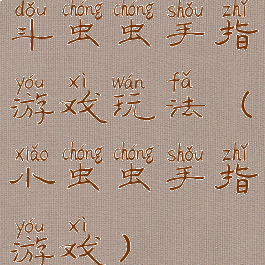 dǒu chóng chóng shǒu zhǐ
斗虫虫手指
yóu xì wán fǎ
游戏玩法（
xiǎo chóng chóng shǒu zhǐ
小虫虫手指
yóu xì
游戏）